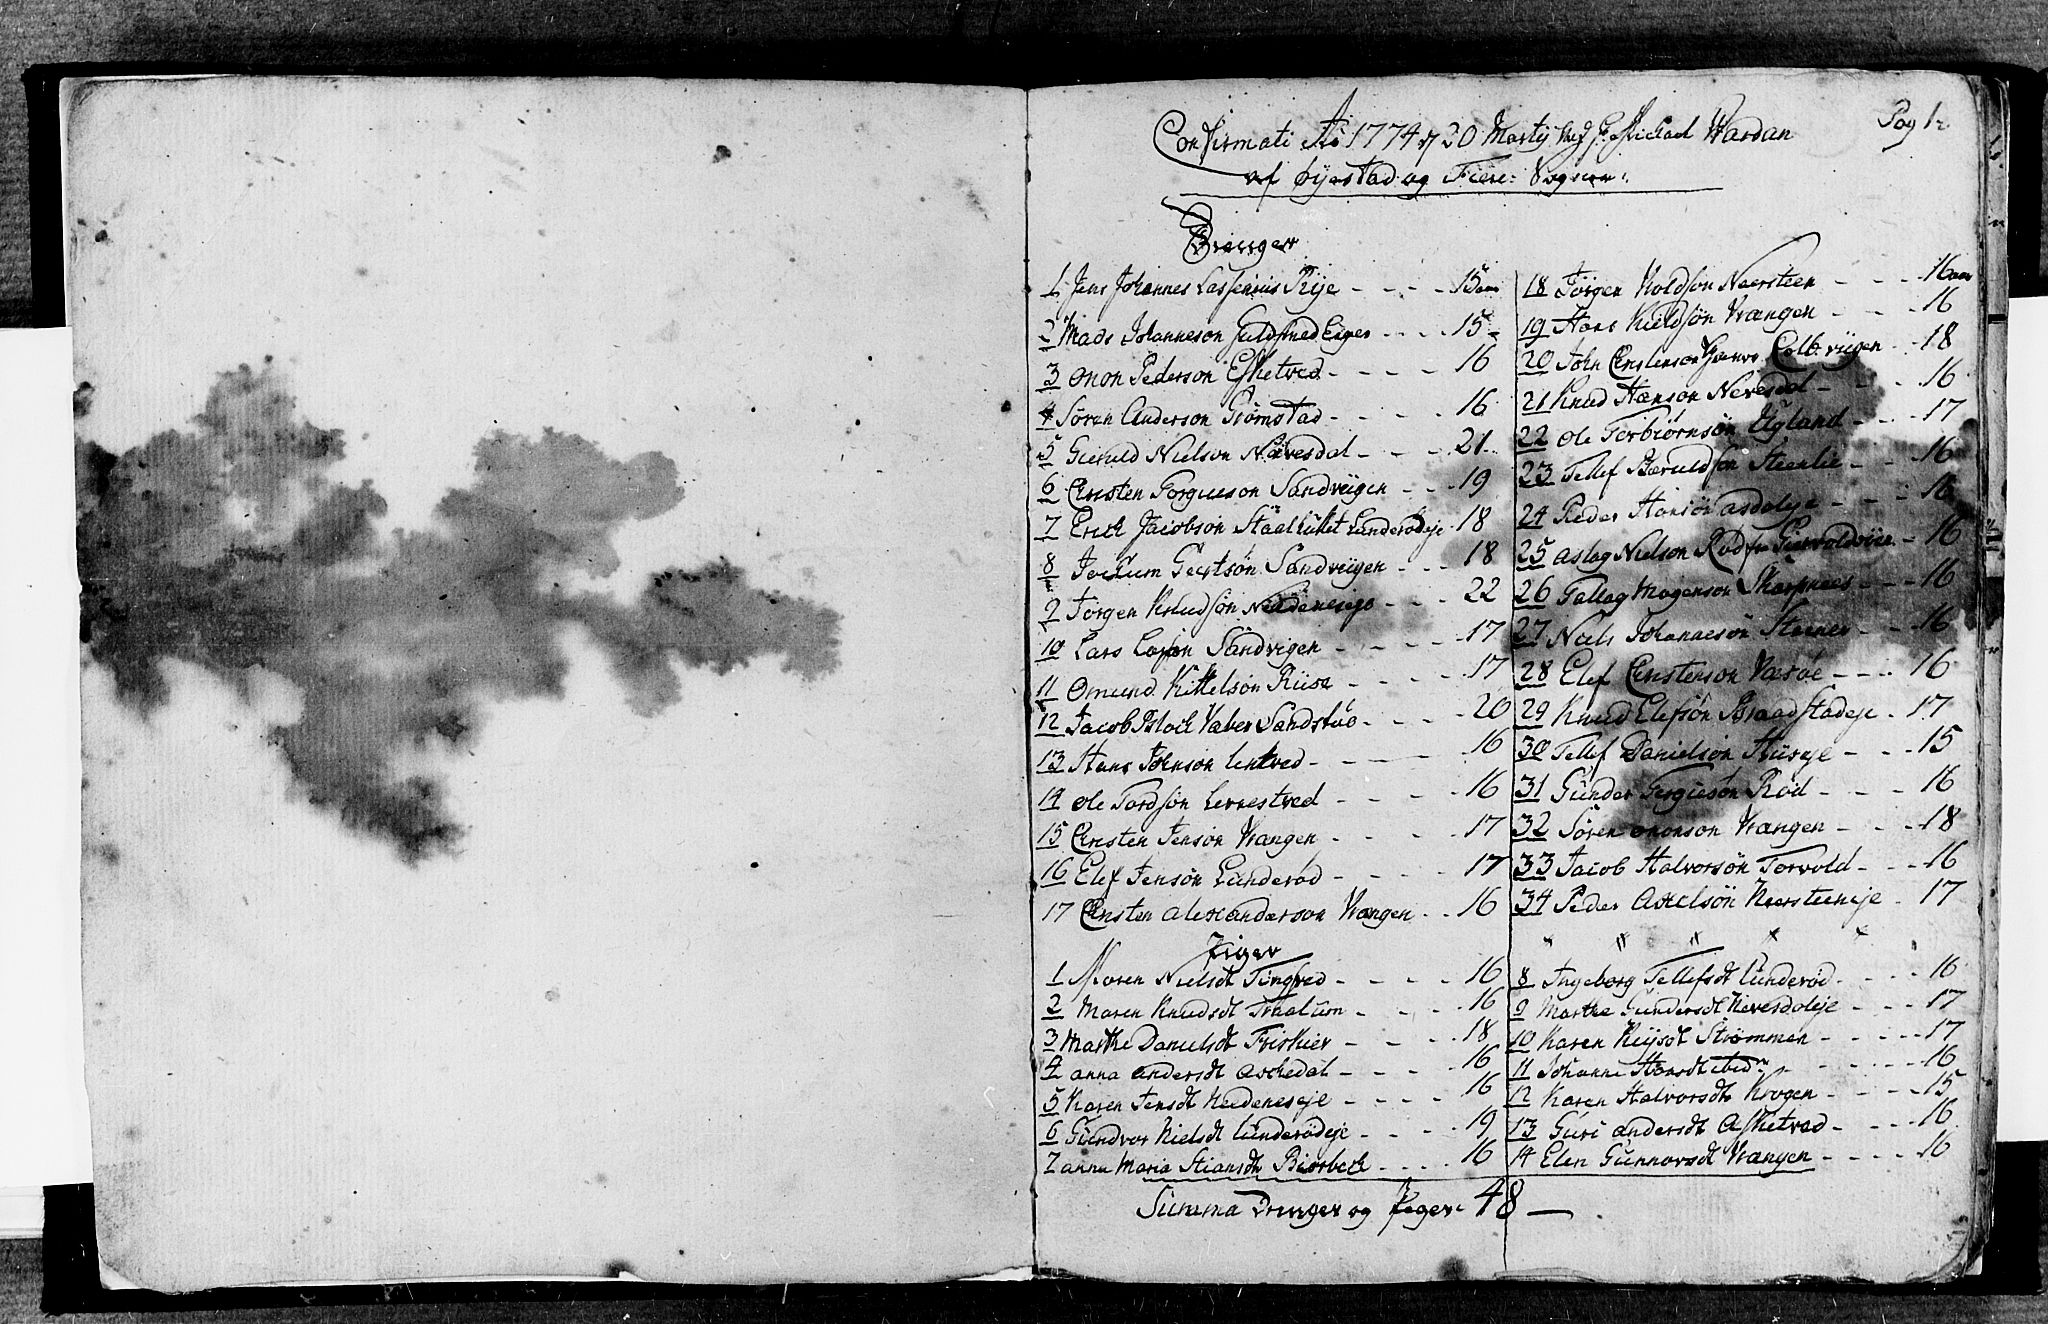 Pag 1
Confirmati Ao 1774 d 20 Martij Michael Wardan
af Øyestad og Fiere: Sogner:
Drenger
1 Jens Johannes Lassenius Rije - - - - 15 aar
2 Mads Johanneson Guldsmed Eiger - - - 15 -
3 Onon Pederson Eshetved - - - - - 16
4 Søren Anderson Grømstad - - - - 16
5 Gieruld Nielson Nævesdal - - - - 21
6 Christen Torgueson Sandviigen - - - 19
7 Erich Jacobson Lunderødeje - 18
8 Jochum Geertsøn Sandviigen - - - 18
9 Jørgen Knudsøn Nedeneseje - - - 22
10 Lars Sandvigen - - - - 17
11 Omund Kittelsøn Riise - - - - - 17
12 Jacob Bloch Waber Sandstøe - - - - 20
13 Hans Johnson Lintved - - - - 16
14 Ole Tordsøn Lernestved - - - - 16
15 Christen Jensøn Vrængen - - - - 17
16 Elef Jensøn Lunderød - - - - 17
17 Christen Alexanderson Vrængen - - 16
18 Jørgen Noersteen - - - 16 aar
19 Hans Kieldsøn Vrængen - - - 16
20 John Christenson Colb.viigen - - 18
21 Knud Hanson Nevesdal - - - - 16
22 Ole Torbiørnsøn Ugland - - - 17
23 Tellef Bæruldsøn Steenlie - - - 16
24 Peder Hansøn Asdaleje - - - 16
25 Aslag Nielson - 16
26 Tallag Mogenson Skarpnæes - - - 16
27 Niels Johanneson - - - 16
28 Elef Christenson Værøe - - - 16
29 Knud Elefsøn Braadstadeje - 17
30 Tellef Danielsøn Huseje - - - 15
31 Gunder Tergiesøn Rød - - - 16
32 Søren Ononson Vrængen - - - 18
33 Jacob Halvorsøn Torvold - - - 16
34 Peder Axelsøn Neersteeneje - 17
Piger
1 Maren Nielsdt Tingsved - - - - 16
2 Maren Knudsdt Trældum - - - - 16
3 Marthe Danielsdt Friskier - - - - 18
4 Anna Andersdt Aschedal - - - - 16
5 Karen Jensdt Nedeneseje - - - - 16
6 Gundvor Nielsdt Lunderødeje - - - 19
7 Anna Maria Stiansdtr Biorbech - - - - 16
8 Ingeborg Tellefsdt Lunderød - - - 16
9 Marthe Gundersdt Nevesdaleje - - - 17
10 Karen Strømmen - - - - 17
11 Johanne Hansdt ibidm - - - - 16
12 Karen Halvorsdtr Krogen - - - - 15
13 Guri Andersdt Askietved - - - 16
14 Elen Gunnarsdt Vrængen - - - - 16
Summa Drenger og Piger - 48 —